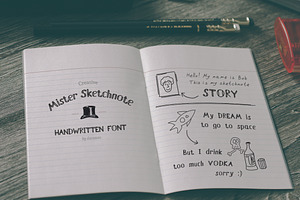 Mister Sketchnote
HANDWRITTEN FONT
Hello! My name is Bob
This is my sketchnote
STORY
My DREAM is
to go to space
But I drink
too much VODKA
sorry :)